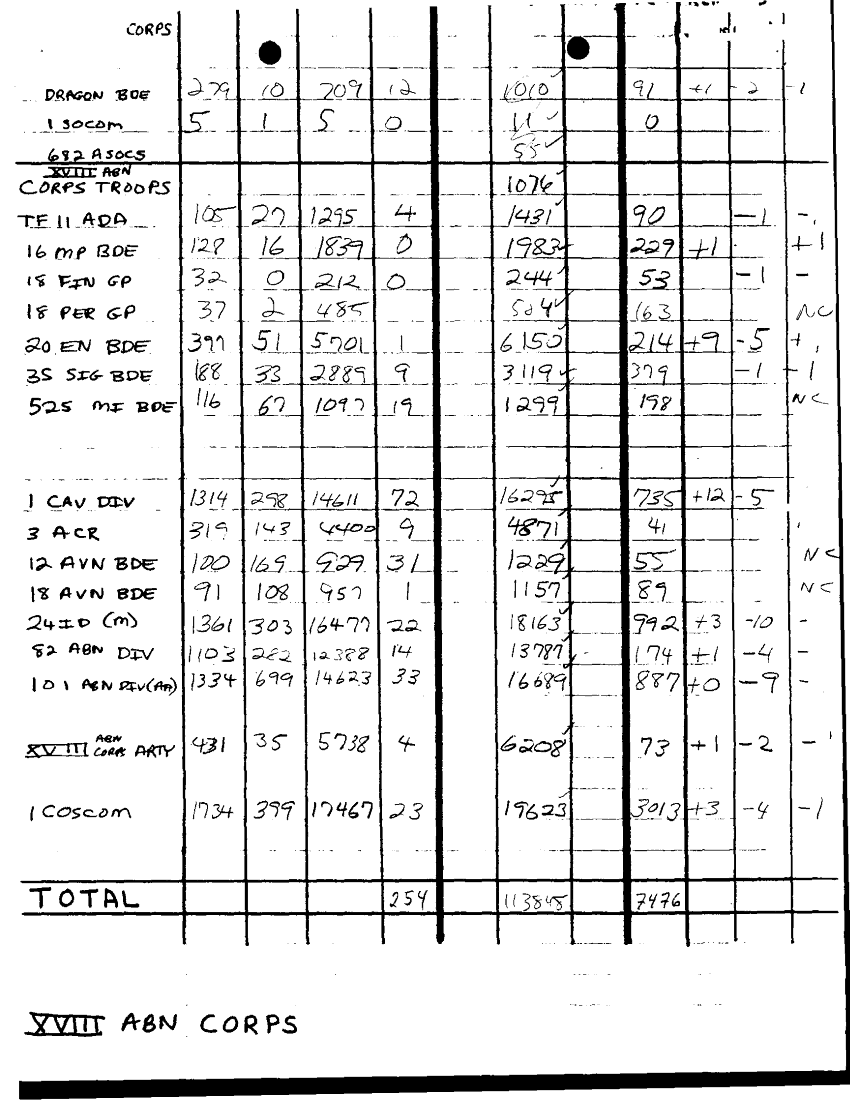 CORPS
DRAGON BDE 279 10 709 12 1010 91 +1 -2 -1
1 SOCOM 5 1 5 0 11 0
682 ASOCS 55
XVIII ABN
CORPS TROOPS 1076
TF 11 ADA 105 27 1295 4 1431 90 -1 -
16 MP BDE 128 16 1839 0 1983 229 +1 +1
18 FIN GP 32 0 212 0 244 53 -1 -
18 PER GP 37 2 485 524 163 NC
20 EN BDE 397 51 5701 1 6150 214 +9 -5 +
35 SIG BDE 188 33 2889 9 3119 379 -1 -1
525 MI BDE 116 67 1097 19 1299 198 NC
1 CAV DIV 1314 298 14611 72 16295 735 +12 -5
3 ACR 319 143 4400 9 4871 41
12 AVN BDE 100 169 929 31 1229 55 NC
18 AVN BDE 91 108 957 1 1157 89 NC
24 ID (M) 1361 303 16477 22 18163 992 +3 -10 -
82 ABN DIV 1103 282 12388 14 13787 174 +1 -4 -
101 ABN DIV (AA) 1334 699 14623 33 16689 887 +0 -9 -
XVIII ABN CORPS ARTY 431 35 5738 4 6208 73 +1 -2 -
1 COSCOM 1734 399 17467 23 19623 3013 +3 -4 -1
TOTAL 254 113845 7476
XVIII ABN CORPS